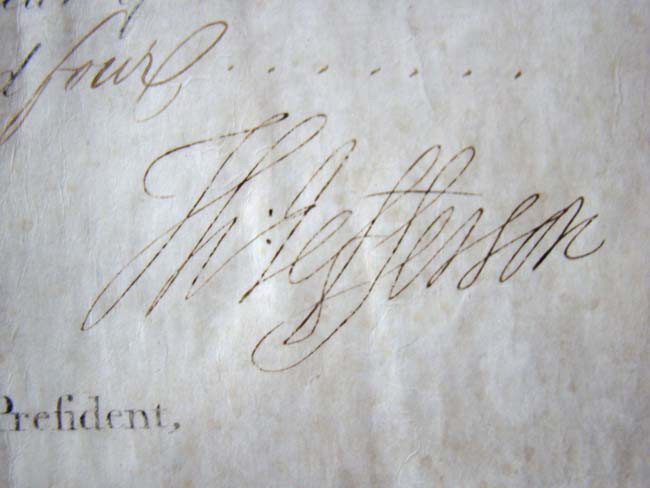 four . . . . . . . . .
Th: Jefferson
Preſident,